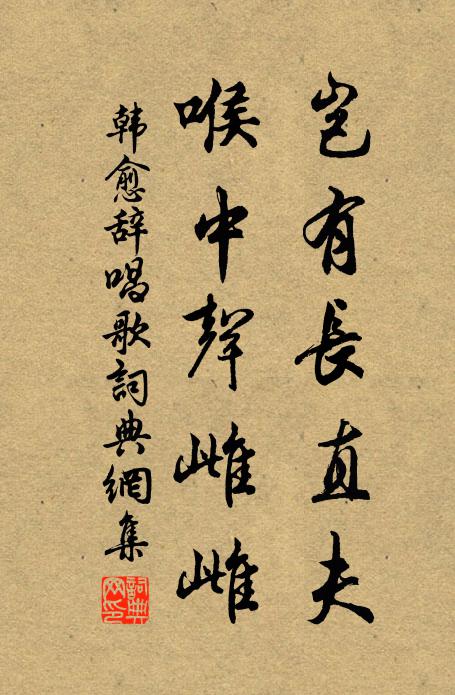 岂有長直夫
喉中聲雌雌
韩愈辞唱歌詞典網集
詞典网印